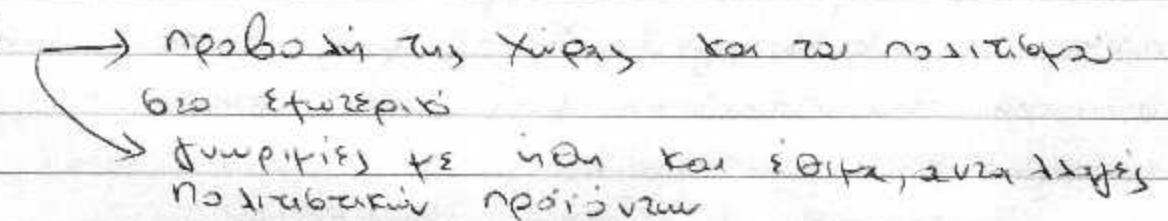 → προβολή της χώρας και του πολιτισμού
στο εξωτερικό
→ γνωριμίες με ήθη και έθιμα, ανταλλαγές
πολιτιστικών προϊόντων